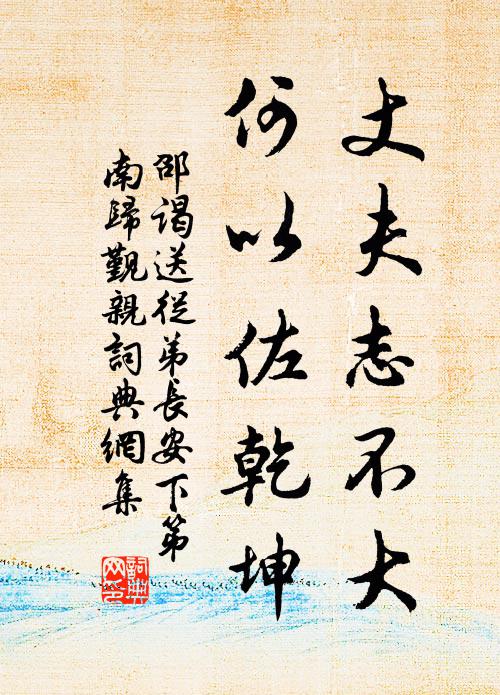 丈夫志不大
何以佐乾坤
邵謁送從弟長安下第
南歸覲親詞典網集